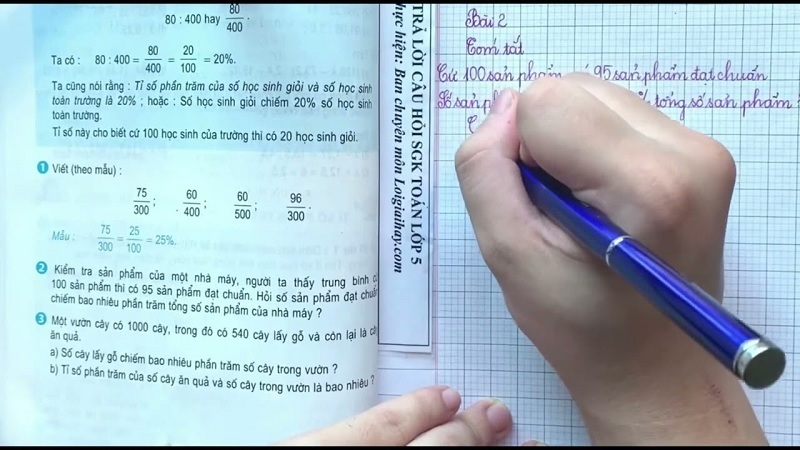 80 : 400 hay 80/400 ;
Ta có : 80 : 400 = 80/400 = 20/100 = 20%.
Ta cũng nói rằng : Tỉ số phần trăm của số học sinh giỏi và số học sinh
toàn trường là 20% ; hoặc : Số học sinh giỏi chiếm 20% số học sinh
toàn trường.
Tỉ số này cho biết cứ 100 học sinh của trường thì có 20 học sinh giỏi.
1 Viết (theo mẫu) :
75/300 ; 60/400 ; 60/500 ; 96/300 .
Mẫu : 75/300 = 25/100 = 25%.
2 Kiểm tra sản phẩm của một nhà máy, người ta thấy trung bình
100 sản phẩm thì có 95 sản phẩm đạt chuẩn. Hỏi số sản phẩm đạt
chiếm bao nhiêu phần trăm tổng số sản phẩm của nhà máy ?
3 Một vườn cây có 1000 cây, trong đó có 540 cây lấy gỗ và còn lại là
ăn quả.
a) Số cây lấy gỗ chiếm bao nhiêu phần trăm số cây trong vườn ?
b) Tỉ số phần trăm của số cây ăn quả và số cây trong vườn là bao nhiêu ?
TRẢ LỜI CÂU HỎI SGK TOÁN LỚP 5
hực hiện: Ban chuyên môn Loigiaihay.com
Bài 2
Tóm tắt
Cứ 100 sản phẩm có 95 sản phẩm đạt chuẩn
Số sản % tổng số sản phẩm